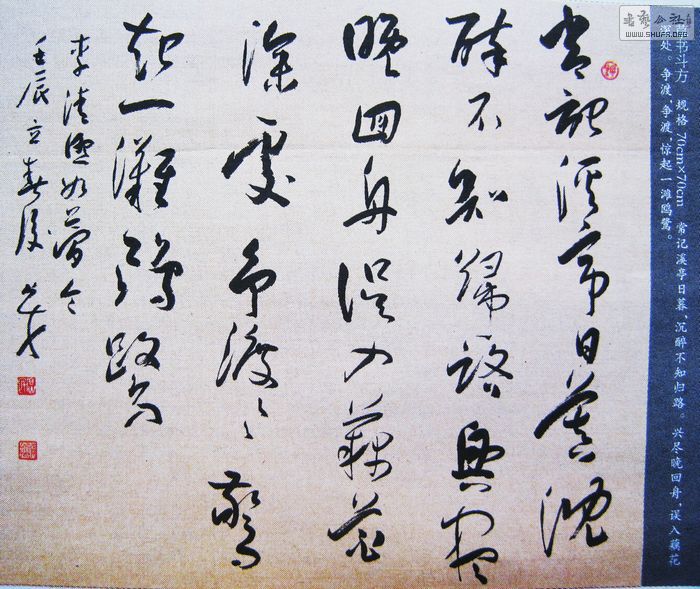 常記溪亭日暮沈
醉不知歸路興盡
晚回舟誤入藕花
深處爭渡々驚
起一灘鷗鷺
李清照如夢令
壬辰立春後
书斗方 规格 70cm×70cm 常记溪亭日暮，沉醉不知归路。兴尽晚回舟，误入藕花
处。争渡，争渡，惊起一滩鸥鹭。
WWW.SHUFA.ORG